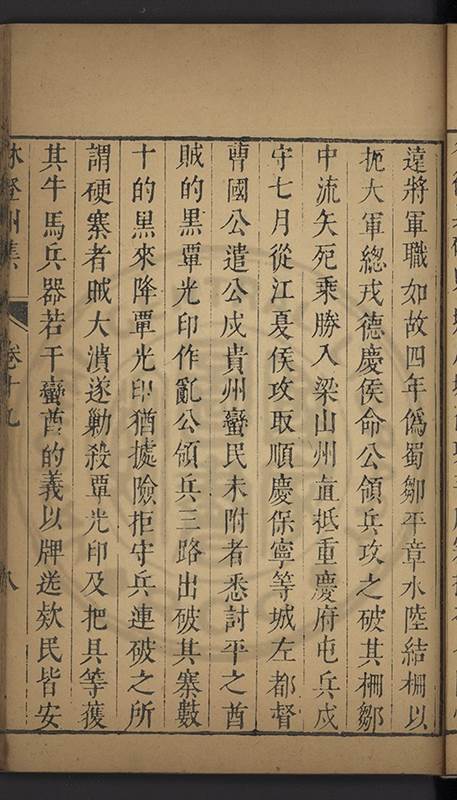 遠將軍職如故四年偽蜀鄒平章水陸結柵以
扼大軍總戎德慶侯命公領兵攻之破其柵鄒
中流矢死乘勝入梁山州直抵重慶府屯兵戍
守七月從江夏侯攻取順慶保寧等城左都督
曹國公遣公戍貴州蠻民未附者悉討平之酋
賊的黑覃光印作亂公領兵三路出破其寨數
十的黑來降覃光印猶據險拒守兵連破之所
謂硬寨者賊大潰遂勦殺覃光印及把具等獲
其牛馬兵器若干蠻酋的義以牌送欵民皆安
卷十九
八